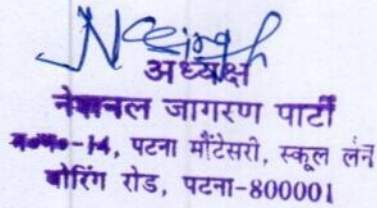 अध्यक्ष
नेशनल जागरण पार्टी
म०न०-14, पटना मौंटेसरी, स्कूल लेन
बोरिंग रोड, पटना-800001